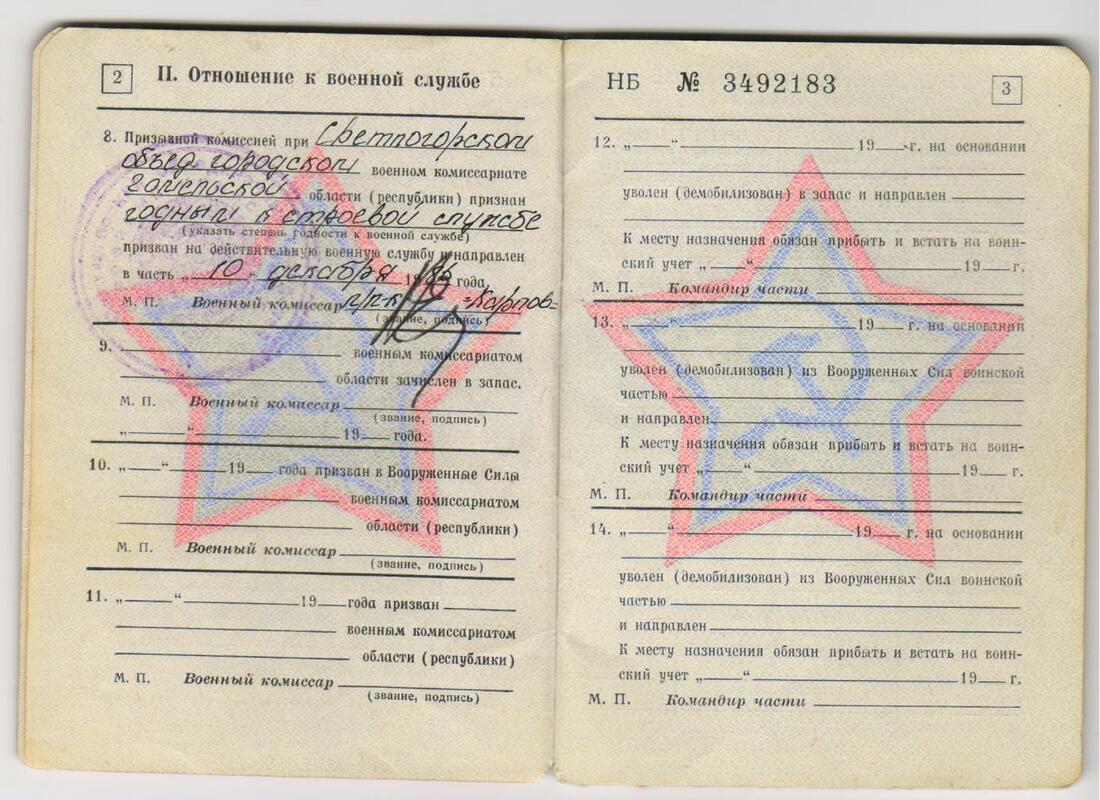 2
II. Отношение к военной службе
8. Призывной комиссией при Светлогорском
объед. городском военном комиссариате
Гомельской области (республики) признан
годным к строевой службе
(указать степень годности к военной службе)
призван на действительную военную службу и направлен
в часть „ 10 “ декабря 19 года.
М. П. Военный комиссар п/п-к =Карпов=
(звание, подпись)
9. военным комиссариатом
области зачислен в запас.
М. П. Военный комиссар
(звание, подпись)
„ “ 19 года.
10. „ “ 19 года призван в Вооруженные Силы
военным комиссариатом
области (республики)
М. П. Военный комиссар
(звание, подпись)
11. „ “ 19 года призван
военным комиссариатом
области (республики)
М. П. Военный комиссар
(звание, подпись)
НБ № 3492183
3
12. „ “ 19 г. на основании
уволен (демобилизован) в запас и направлен
К месту назначения обязан прибыть и встать на воин-
ский учет „ “ 19 г.
М. П. Командир части
13. „ “ 19 г. на основании
уволен (демобилизован) из Вооруженных Сил воинской
частью
и направлен
К месту назначения обязан прибыть и встать на воин-
ский учет „ “ 19 г.
М. П. Командир части
14. „ “ 19 г. на основании
уволен (демобилизован) из Вооруженных Сил воинской
частью
и направлен
К месту назначения обязан прибыть и встать на воин-
ский учет „ “ 19 г.
М. П. Командир части